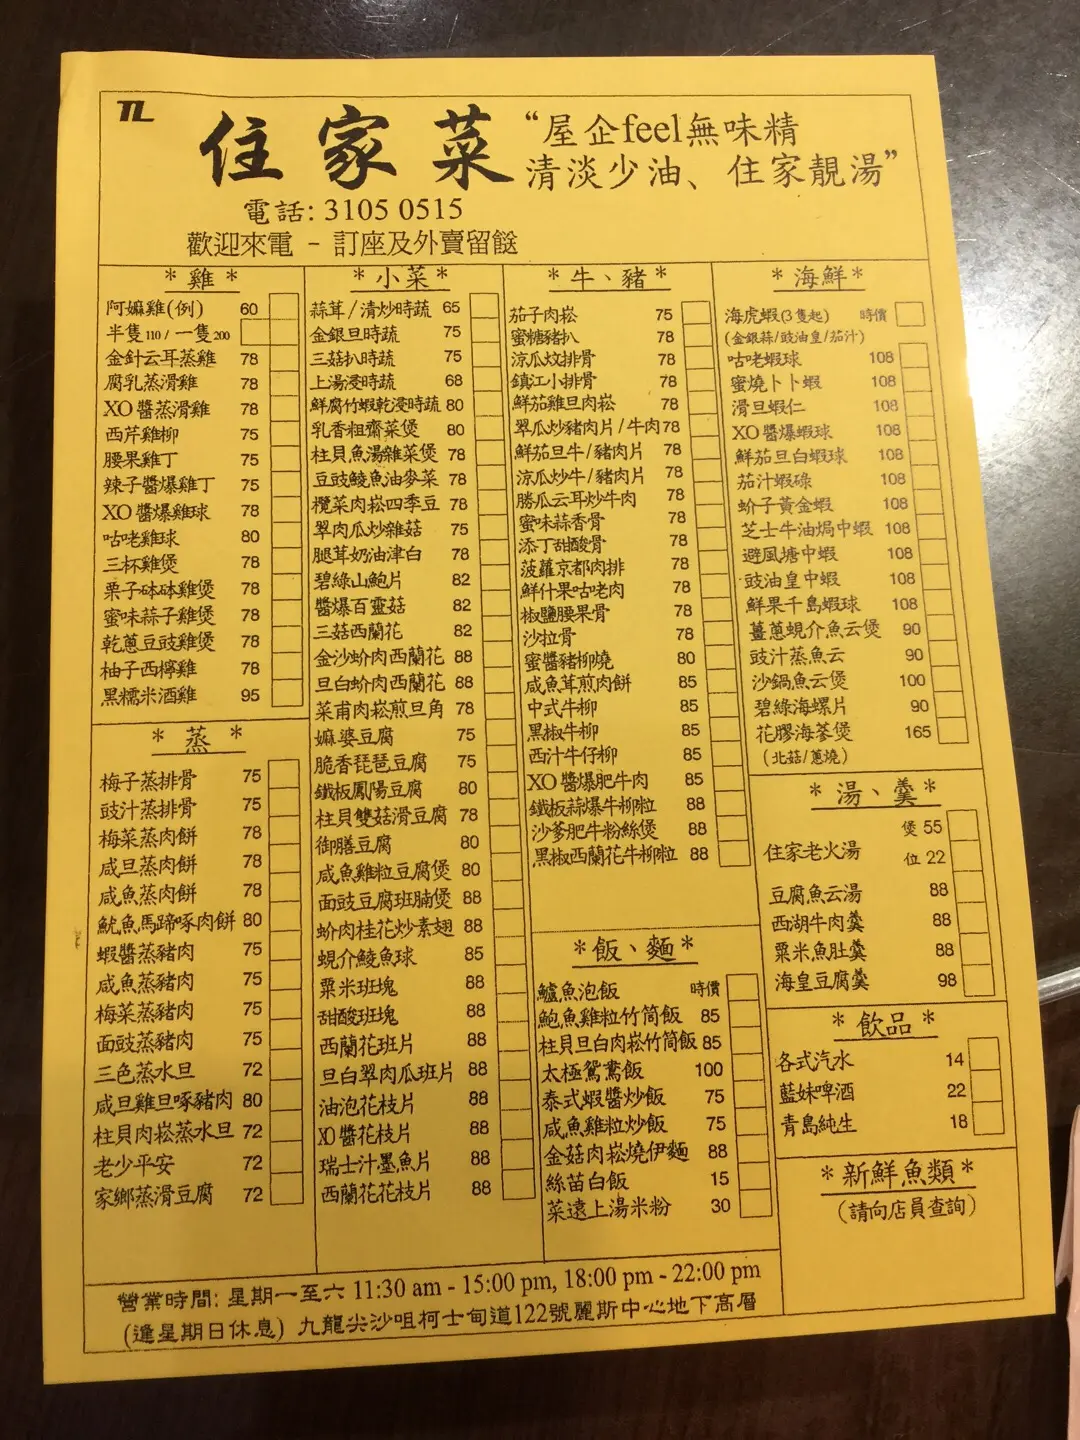 TL
住家菜
“屋企feel無味精
清淡少油、住家靚湯”
電話: 3105 0515
歡迎來電 - 訂座及外賣留餸
*雞*
阿嫲雞(例) 60
半隻110/一隻200
金針云耳蒸雞 78
腐乳蒸滑雞 78
XO醬蒸滑雞 78
西芹雞柳 75
腰果雞丁 75
辣子醬爆雞丁 75
XO醬爆雞球 78
咕咾雞球 80
三杯雞煲 78
栗子砵砵雞煲 78
蜜味蒜子雞煲 78
乾蔥豆豉雞煲 78
柚子西檸雞 78
黑糯米酒雞 95
*蒸*
梅子蒸排骨 75
豉汁蒸排骨 75
梅菜蒸肉餅 78
咸旦蒸肉餅 78
咸魚蒸肉餅 78
魷魚馬蹄啄肉餅 80
蝦醬蒸豬肉 75
咸魚蒸豬肉 75
梅菜蒸豬肉 75
面豉蒸豬肉 75
三色蒸水旦 72
咸旦雞旦啄豬肉 80
柱貝肉崧蒸水旦 72
老少平安 72
家鄉蒸滑豆腐 72
*小菜*
蒜茸/清炒時蔬 65
金銀旦時蔬 75
三菇扒時蔬 75
上湯浸時蔬 68
鮮腐竹蝦乾浸時蔬 80
乳香粗齋菜煲 80
柱貝魚湯雜菜煲 78
豆豉鯪魚油麥菜 78
欖菜肉崧四季豆 78
翠肉瓜炒雜菇 75
腿茸奶油津白 78
碧綠山鮑片 82
醬爆百靈菇 82
三菇西蘭花 82
金沙蚧肉西蘭花 88
旦白蚧肉西蘭花 88
菜甫肉崧煎旦角 78
嫲婆豆腐 75
脆香琵琶豆腐 75
鐵板鳳陽豆腐 80
柱貝雙菇滑豆腐 78
御膳豆腐 80
咸魚雞粒豆腐煲 80
面豉豆腐班腩煲 88
蚧肉桂花炒素翅 88
蜆介鯪魚球 85
粟米班塊 88
甜酸班塊 88
西蘭花班片 88
旦白翠肉瓜班片 88
油泡花枝片 88
XO醬花枝片 88
瑞士汁墨魚片 88
西蘭花花枝片 88
*牛、豬*
茄子肉崧 75
蜜糖豬扒 78
涼瓜炆排骨 78
鎮江小排骨 78
鮮茄雞旦肉崧 78
翠瓜炒豬肉片/牛肉 78
鮮茄旦牛/豬肉片 78
涼瓜炒牛/豬肉片 78
勝瓜云耳炒牛肉 78
蜜味蒜香骨 78
添丁甜酸骨 78
菠蘿京都肉排 78
鮮什果咕咾肉 78
椒鹽腰果骨 78
沙拉骨 78
蜜醬豬柳燒 80
咸魚茸煎肉餅 85
中式牛柳 85
黑椒牛柳 85
西汁牛仔柳 85
XO醬爆肥牛肉 85
鐵板蒜爆牛柳粒 88
沙爹肥牛粉絲煲 88
黑椒西蘭花牛柳粒 88
*飯、麵*
鱸魚泡飯 時價
鮑魚雞粒竹筒飯 85
柱貝旦白肉崧竹筒飯 85
太極鴛鴦飯 100
泰式蝦醬炒飯 75
咸魚雞粒炒飯 75
金菇肉崧燒伊麵 88
絲苗白飯 15
菜遠上湯米粉 30
*海鮮*
海虎蝦(3隻起) 時價
(金銀蒜/豉油皇/茄汁)
咕咾蝦球 108
蜜燒卜卜蝦 108
滑旦蝦仁 108
XO醬爆蝦球 108
鮮茄旦白蝦球 108
茄汁蝦碌 108
蚧子黃金蝦 108
芝士牛油焗中蝦 108
避風塘中蝦 108
豉油皇中蝦 108
鮮果千島蝦球 108
薑蔥蜆介魚云煲 90
豉汁蒸魚云 90
沙鍋魚云煲 100
碧綠海螺片 90
花膠海蔘煲 165
(北菇/蔥燒)
*湯、羹*
煲 55
住家老火湯
位 22
豆腐魚云湯 88
西湖牛肉羹 88
粟米魚肚羹 88
海皇豆腐羹 98
*飲品*
各式汽水 14
藍妹啤酒 22
青島純生 18
*新鮮魚類*
(請向店員查詢)
營業時間: 星期一至六 11:30 am - 15:00 pm, 18:00 pm - 22:00 pm
(逢星期日休息) 九龍尖沙咀柯士甸道122號麗斯中心地下高層